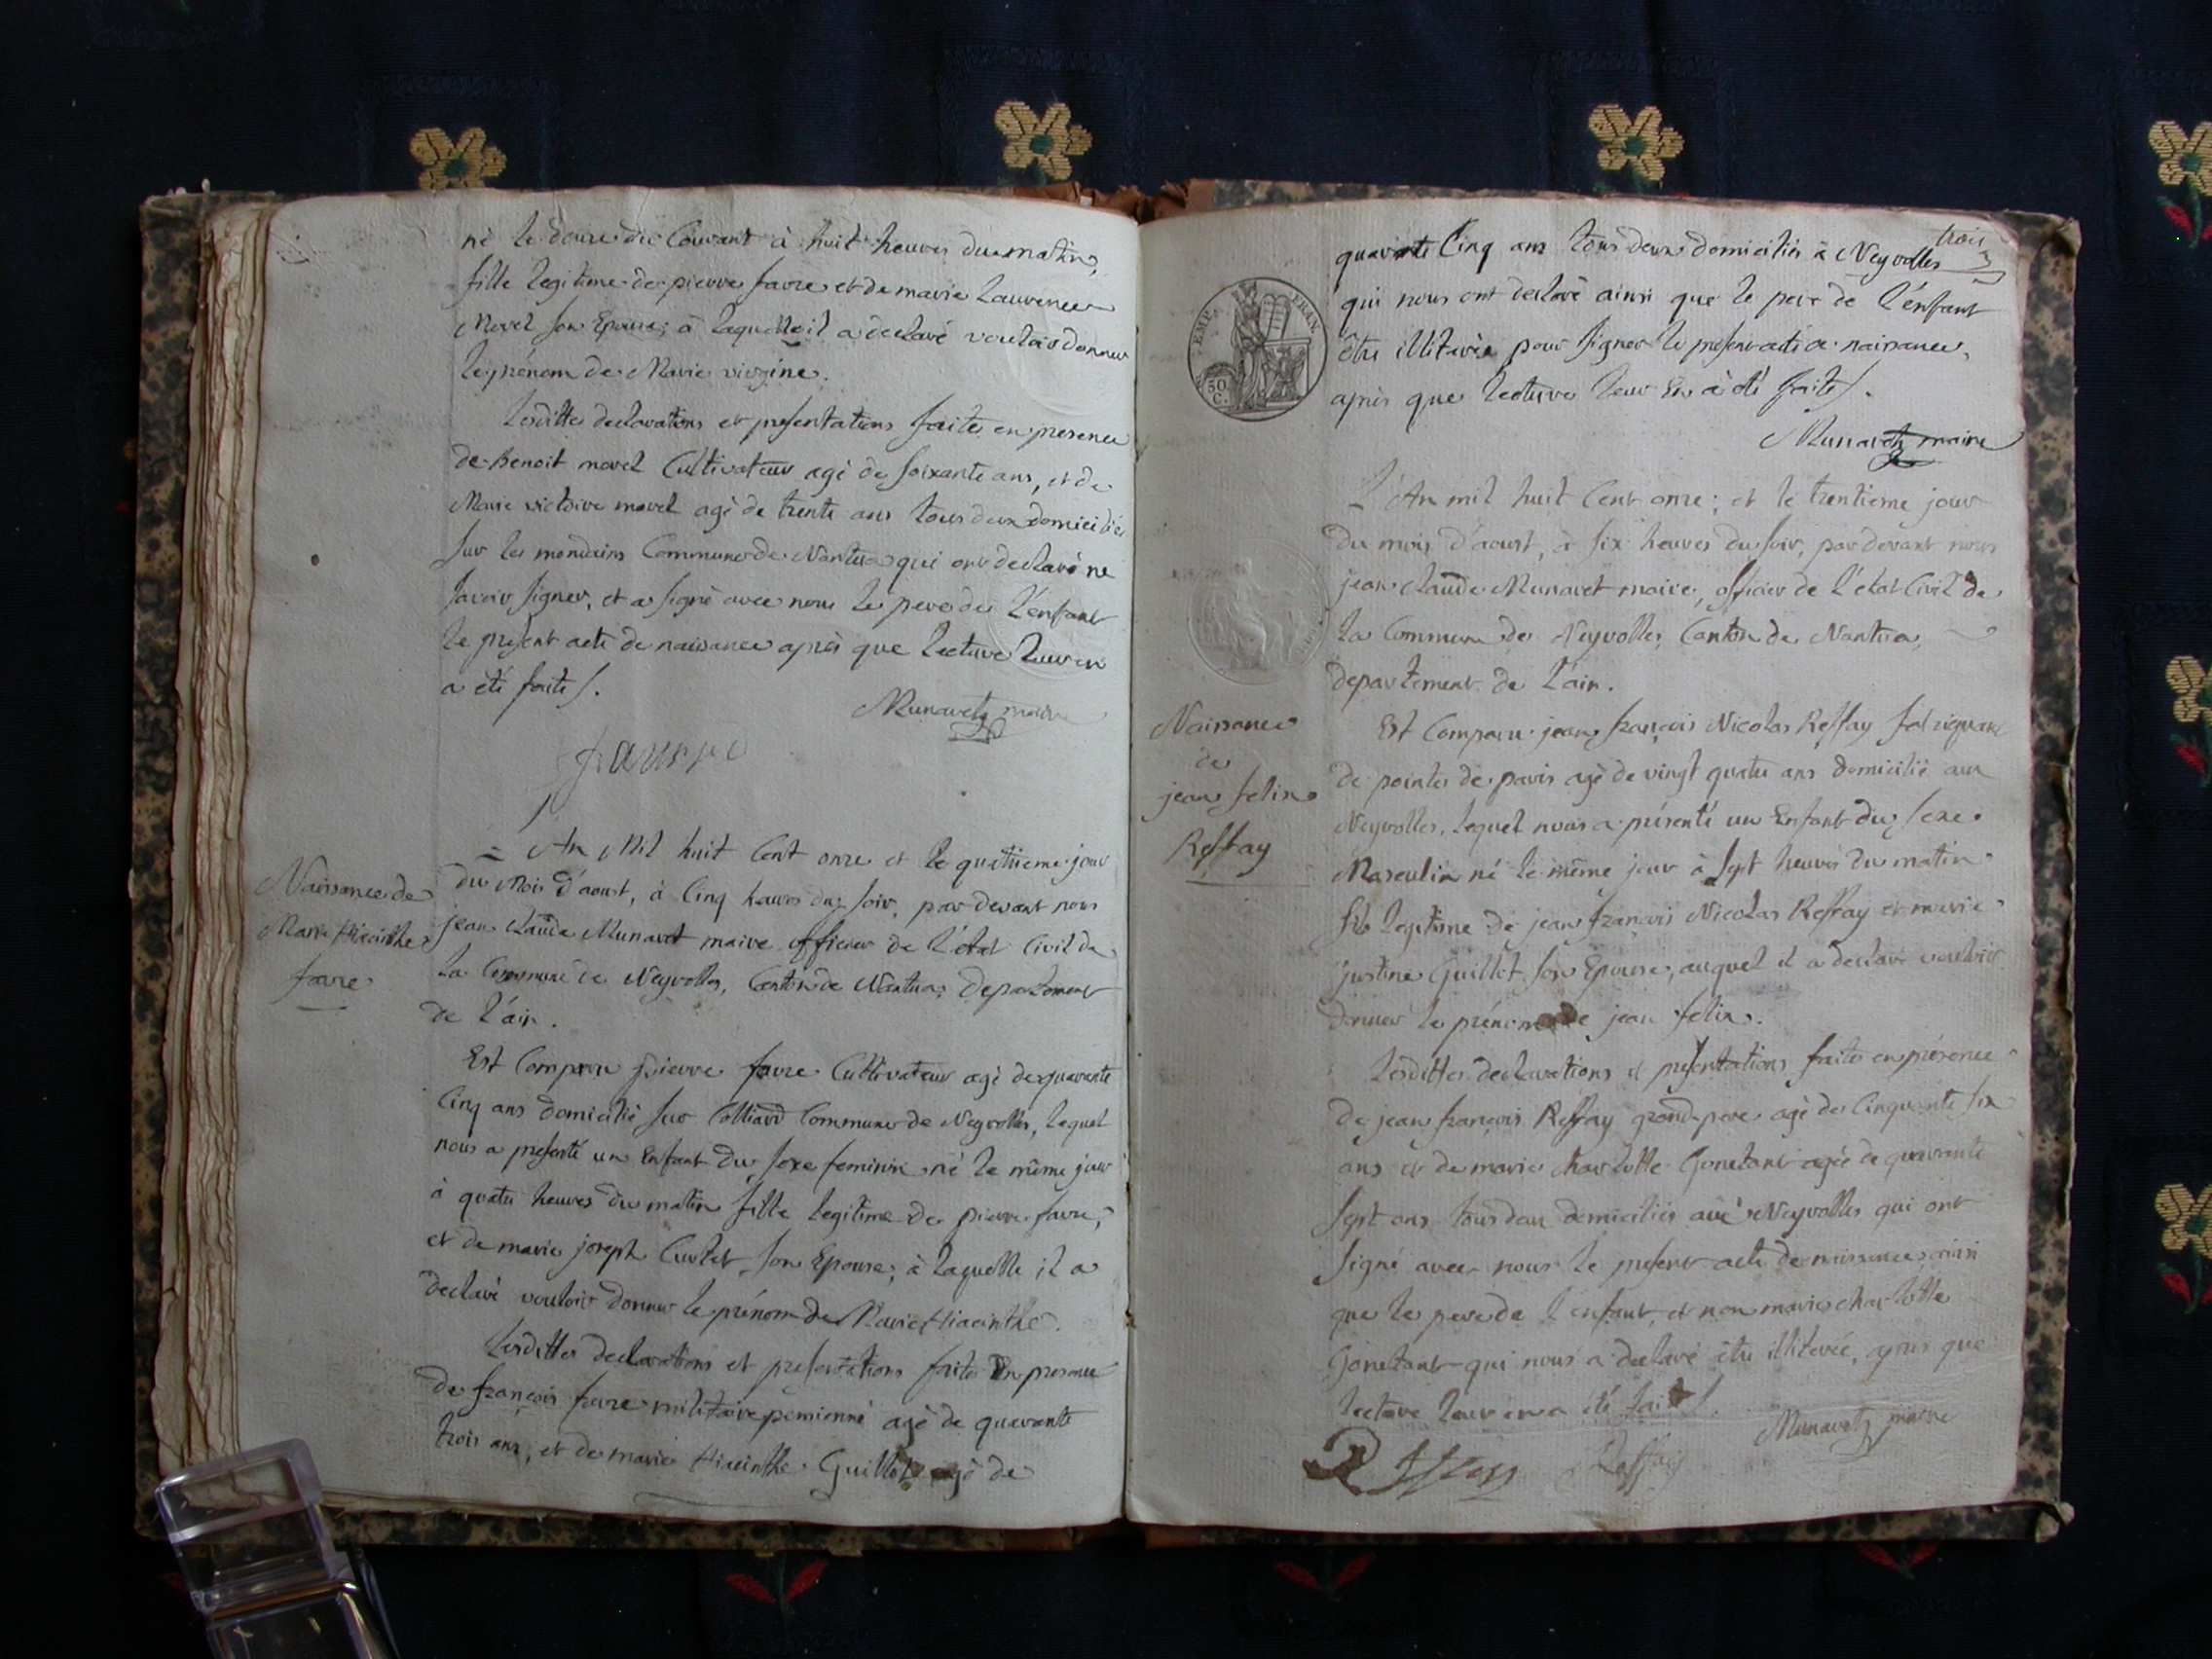 né le douze du Courant à huit heures du matin,
fille legitime de pierre favre et de marie Laurence
Morel son Epouse; à laquelle il a declaré vouloir donner
le prénom de Marie virgine.
Lesdittes declarations et presentations faites en presence
de Benoit morel Cultivateur agé de soixante ans, et de
Marie victoire morel agé de trente ans tous deux domiciliés
sur les monduins Commune de Nantua qui ont declaré ne
savoir signer, et a signé avec nous le pere de L'enfant
le present acte de naissance après que lecture leur en
a été faite/.
Munaret maire
Naissance de
Marie Hiacinthe
favre
An Mil huit Cent onze et le quatrieme jour
du Mois d'aoust, à Cinq heures du soir, par devant nous
jean Claude Munaret maire officier de L'état Civil de
la Commune de Neyrolles, Canton de Nantua, departement
de L'ain.
Est Comparu pierre favre Cultivateur agé de quarante
Cinq ans domicilié sur Colliard Commune de Neyrolles, lequel
nous a presenté un Enfant du sexe feminin né le même jour
à quatre heures du matin fille legitime de pierre favre,
et de marie joseph Curlet son Epouse; à laquelle il a
declaré vouloir donner le prénom de Marie Hiacinthe.
Lesdittes declarations et presentations faites En presence
de françois favre militaire pensionné agé de quarante
trois ans, et de marie Hiacinthe Guillot agé de
trois
3
quarante Cinq ans tous deux domiciliés à Neyrolles
qui nous ont declaré ainsi que le pere de L'énfant
être illiteré pour signer le present acte de naissance,
après que lecture leur En a été faite/.
Munaret maire
EMP. FRAN.
50
C.
L'An mil huit Cent onze; et le trentieme jour
du mois d'aoust, à six heures du soir, par devant nous
jean Claude Munaret maire, officier de L'état Civil de
la Commune de Neyrolles, Canton de Nantua,
departement de L'ain.
Naissance
de
jean felix
Reffay
Est Comparu jean françois Nicolas Reffay fabriquant
de pointes de paris agé de vingt quatre ans domicilié aux
Neyrolles, lequel nous a présenté un Enfant du sexe
Masculin né le même jour à sept heures du matin
fils legitime de jean françois Nicolas Reffay et marie
justine Guillot son Epouse, auquel il a declaré vouloir
donner le prénom de jean felix.
Lesdittes declarations et presentations faites en présence
de jean françois Reffay grand pere agé de Cinquante six
ans et de marie charlotte Gonetant agée de quarante
sept ans tous deux domiciliés aux Neyrolles qui ont
signé avec nous le present acte de naissance ainsi
que le pere de l'enfant, et non marie charlotte
Gonetant qui nous a declaré être illiterée, après que
lecture leur en a été faite/.
Munaret maire
Reffay